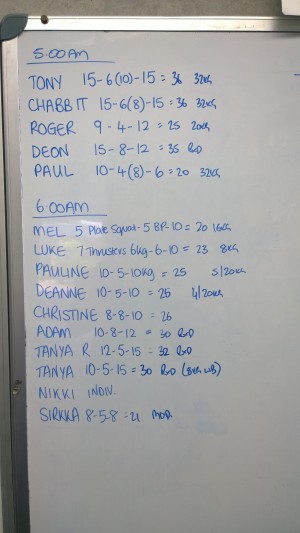 5:00AM
TONY 15-6(10)-15 = 36 32KG
CHABBIT 15-6(8)-15=36 32KG
ROGER 9-4-12 = 25 20KG
DEON 15-8-12 = 35 RxD
PAUL 10-4(8)-6=20 32KG
6:00AM
MEL 5 Plate Squat-5 BP-10=20 16KG
LUKE 7 Thrusters 6kg-6-10 = 23 8KG
PAULINE 10-5-10KG = 25 5/20KG
DEANNE 10-5-10 = 25 4/20KG
CHRISTINE 8-8-10 = 26
ADAM 10-8-12 = 30 RxD
TANYA R 12-5-15= 32 RxD
TANYA 10-5-15=30 RxD (8KG WB)
NIKKI INDIV.
SIRKKA 8-5-8 = 21 MOD.